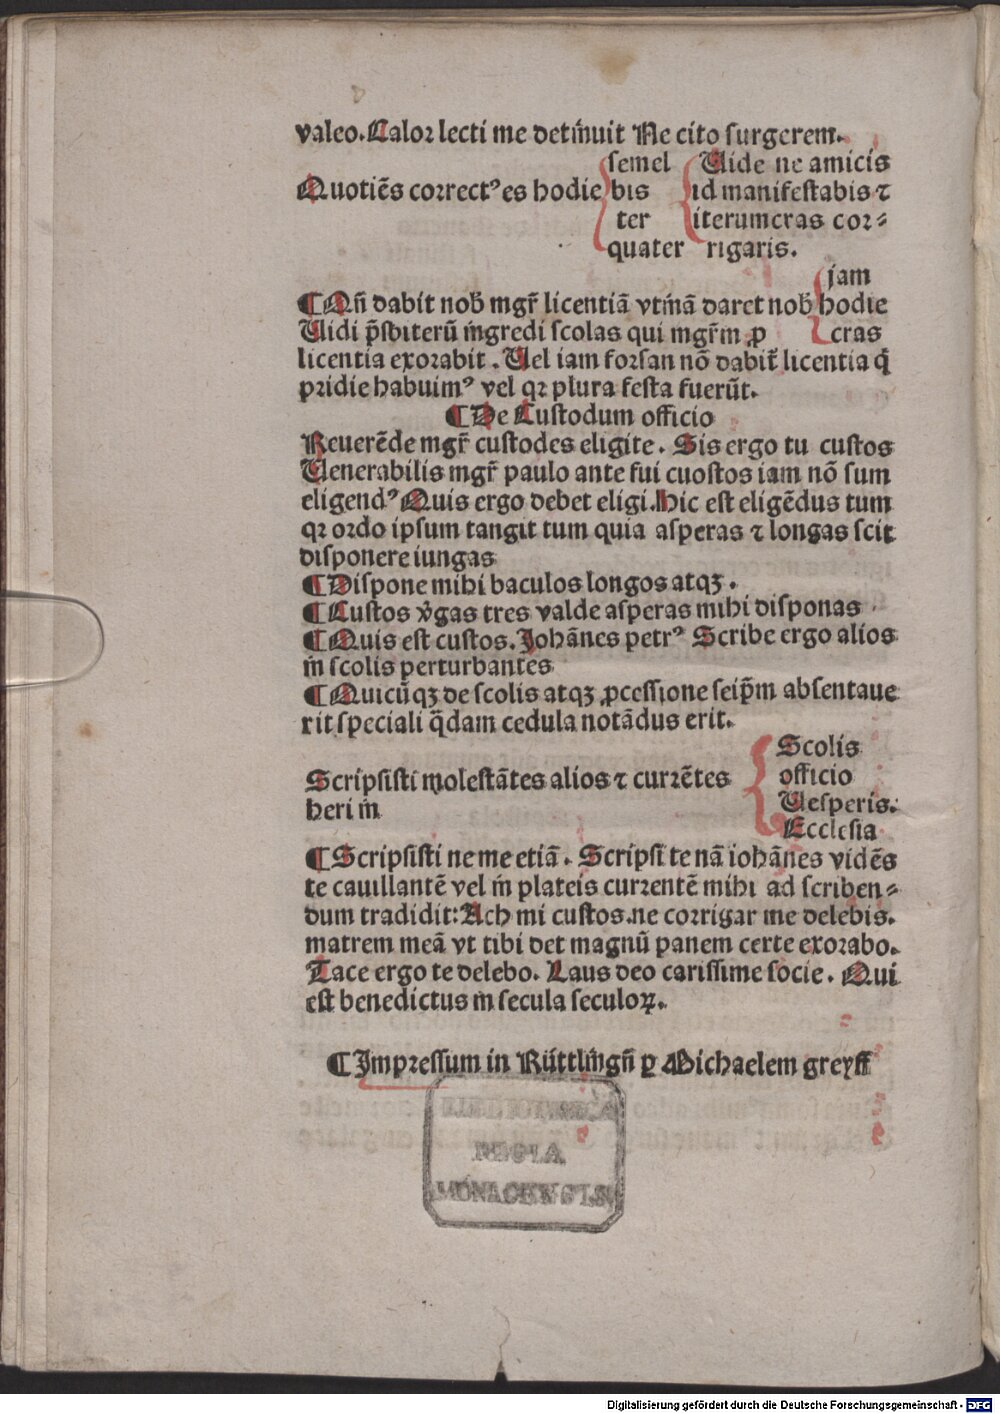 valeo. Calor lecti me detīnuit Ne cito surgerem.
semel Vide ne amicis
Quotiēs correctꝰ es hodie bis id manifestabis ⁊
ter iterum cras cor⸗
quater rigaris.
jam
¶ Qn̄ dabit nob̄ mgr̄ licentiā vtīnā daret nob̄ hodie
Vidi p̄sbiterū īngredi scolas qui mgr̄m ꝓ cras
licentia exorabit. Vel iam forsan nō dabit̄ licentia q̄
pridie habuimꝰ vel qꝛ plura festa fuerūt.
¶ De Custodum officio
Reuerēde mgr̄ custodes eligite. Sis ergo tu custos
Venerabilis mgr̄ paulo ante fui cuostos iam nō sum
eligendꝰ Quis ergo debet eligi. Hic est eligēdus tum
qꝛ ordo ipsum tangit tum quia asperas ⁊ longas scit
disponere iungas
¶ Dispone mihi baculos longos atqꝫ.
¶ Custos v̄gas tres valde asperas mihi disponas
¶ Quis est custos. Johānes petrꝰ Scribe ergo alios
īn scolis perturbantes
¶ Quicūqꝫ de scolis atqꝫ ꝓcessione seip̄m absentaue
rit speciali q̄dam cedula notādus erit.
Scolis
Scripsisti molestātes alios ⁊ currētes officio
heri īn Vesperis.
Ecclesia
¶ Scripsisti ne me etiā. Scripsi te nā iohānes vidēs
te cauillantē vel īn plateis currentē mihi ad scriben⸗
dum tradidit: Ach mi custos. ne corrigar me delebis.
matrem meā vt tibi det magnū panem certe exorabo.
Tace ergo te delebo. Laus deo carissime socie. Qui
est benedictus īn secula seculoꝝ.
¶ Impressum in Rüttlīngn̄ ꝑ Michaelem greyff
REGIA
MONACENSIS
Digitalisierung gefördert durch die Deutsche Forschungsgemeinschaft - DFG